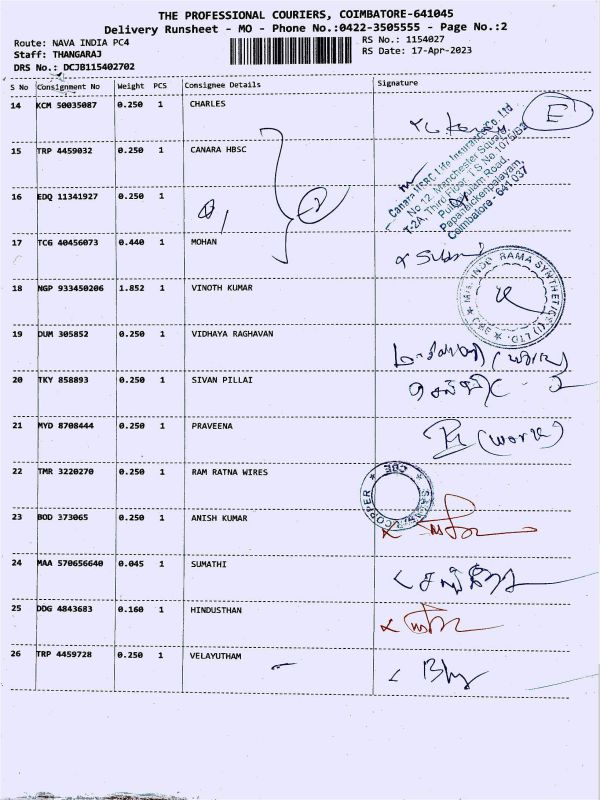 THE PROFESSIONAL COURIERS, COIMBATORE-641045
Delivery Runsheet - MO - Phone No.:0422-3505555 - Page No.:2
Route: NAVA INDIA PC4
RS No.: 1154027
Staff: THANGARAJ
RS Date: 17-Apr-2023
DRS No.: DCJB115402702
S No Consignment No Weight PCS Consignee Details Signature
14 KCM 50035087 0.250 1 CHARLES
E
15 TRP 4459032 0.250 1 CANARA HBSC
Canara HSBC Life Insurance Co. Ltd
No 12, Manchester Square
T-2A, Third Floor, T S No 1075/B3
Puliakulam Road,
Pappanaickenpalayam,
Coimbatore - 641 037
16 EDQ 11341927 0.250 1
17 TCG 40456073 0.440 1 MOHAN
18 NGP 933450206 1.852 1 VINOTH KUMAR
M/s. INDO RAMA SYNTHETICS (I) LTD. CBE
19 DUM 305852 0.250 1 VIDHAYA RAGHAVAN
20 TKY 858893 0.250 1 SIVAN PILLAI
21 MYD 8708444 0.250 1 PRAVEENA
(work)
22 TMR 3220270 0.250 1 RAM RATNA WIRES
CBE
COPPER
23 BOD 373065 0.250 1 ANISH KUMAR
24 MAA 570656640 0.045 1 SUMATHI
25 DDG 4843683 0.160 1 HINDUSTHAN
26 TRP 4459728 0.250 1 VELAYUTHAM